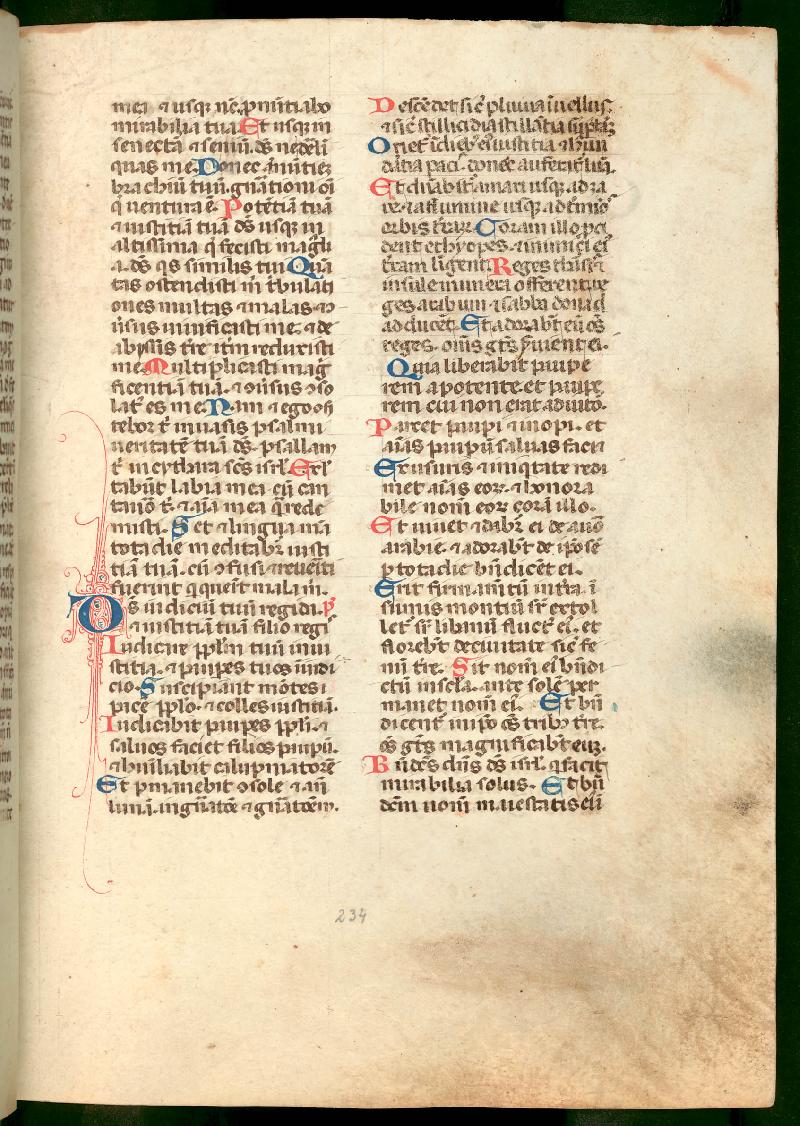 mea ⁊ usq; nc̄ p̄nuntiabo
mirabilia tua. Et usq; in
senectā ⁊ seniū. ds̄ ne deli
quas me. Donec ānūtiē
brachiū tuū. gñationi oī
q̄ ventura ē. Potētiā tuā
⁊ iustitiā tuā ds̄ usq; in
altissima q̄ fecisti magña
lia. ds̄ q̄s similis tui. Quā
tas ostendisti m̄ tribulati
ones multas ⁊ malas ⁊ ꝯ
ūsus uiuificasti me: ⁊ de
abyssis tr̄e itm̄ reduxisti
me. Multiplicasti mag̃
ficentiā tuā. ⁊ ꝯūsus ꝯso
lat̄ es me. Nam ⁊ ego ꝯfi
tebor t̄ in uasis psalmi
ueritatē tuā ds̄. psallam
t̄ in cythara sc̄s isrl̄. Exl̄
tabūt labia mea cū can
tauo t̄. ⁊ aīa mea q̄ rede
misti. Set ⁊ lingua mā
tota die meditabr̄ iusti
tiā tuā. cū ꝯfusi ⁊ reueriti
fuerint q̄ querūt mala m̄.
Ds̄ iudiciū tuū regi da. p̄
⁊ iustitiā tuā filio regī
Iudicare ppl̄m tuū in iu
stitia. ⁊ paup̄es tuos in iudi
cio. Suscipiant mōtes
picē ppl̄o. ⁊ colles iustitiā.
Iudicabit paup̄es ppl̄i. ⁊
saluos faciet filios paup̄ū.
⁊ hūiliabit calūpnatorē
Et p̄manebit ꝯ sole ⁊ an̄
lunā. in gñatōe ⁊ gñatōem.
Descēdet sic̄ pluuia ī uellus.
⁊ sic̄ stillicidia stillātia sup̄ trā.
Oriet̄ ī dieb; ei iustitia ⁊ habun
dātia pacī. donec auferat̄ luā.
Et dn̄abit̄ a mari usq; ad ma
re. ⁊ a flumine usq; ad t̄minos
orbis t̄rar̄. Coram illo p̄ci
dent ethyopes. ⁊ inimici eī
t̄ram lingent. Reges tharsis ⁊
insule munera offerent. re
ges arabum ⁊ sabba dona ad
adducēt. Et adorabt̄ eū oēs
reges. oēs gēs s̄uient ei.
Quia liberabit paupe
rem a potente. et paupe
rem cui non erat adiuto.
Parcet paupi ⁊ inopi. et
aīas paupū saluas facit.
Ex usuris ⁊ iniq̄tate redi
met aīas eor̄. ⁊ honora
bile nom̄ eor̄ corā illo.
Et uiuet ⁊ dabr̄ ei de auro
arabie. ⁊ adorabt̄ de ip̄o sē
p̄ tota die bn̄dicēt ei.
Erit firmam̄tū in t̄ra. ī
sūmis montiū. sr̄ extol
let̄ sr̄ libanū fluct̄ eī. et
florebt̄ de ciuitate sic̄ fe
nū tr̄e. Sit nom̄ eī bn̄di
ctū in scl̄a. ante solē per
manet nom̄ eī. Et bn̄
dicent̄ in ip̄o oēs trib; tr̄e.
oēs gēs magnificabt̄ eū.
Bn̄dcs̄ dn̄s ds̄ isrl̄. q̄ facit
mirabilia solus. Et bn̄
dc̄m nom̄ maiestatis eī ī
234